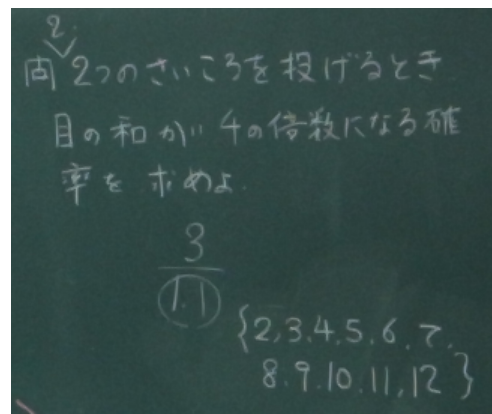 2.
問 2つのさいころを投げるとき
目の和が4の倍数になる確
率を求めよ.
3
11
{2,3,4,5,6,7,
8,9,10,11,12}